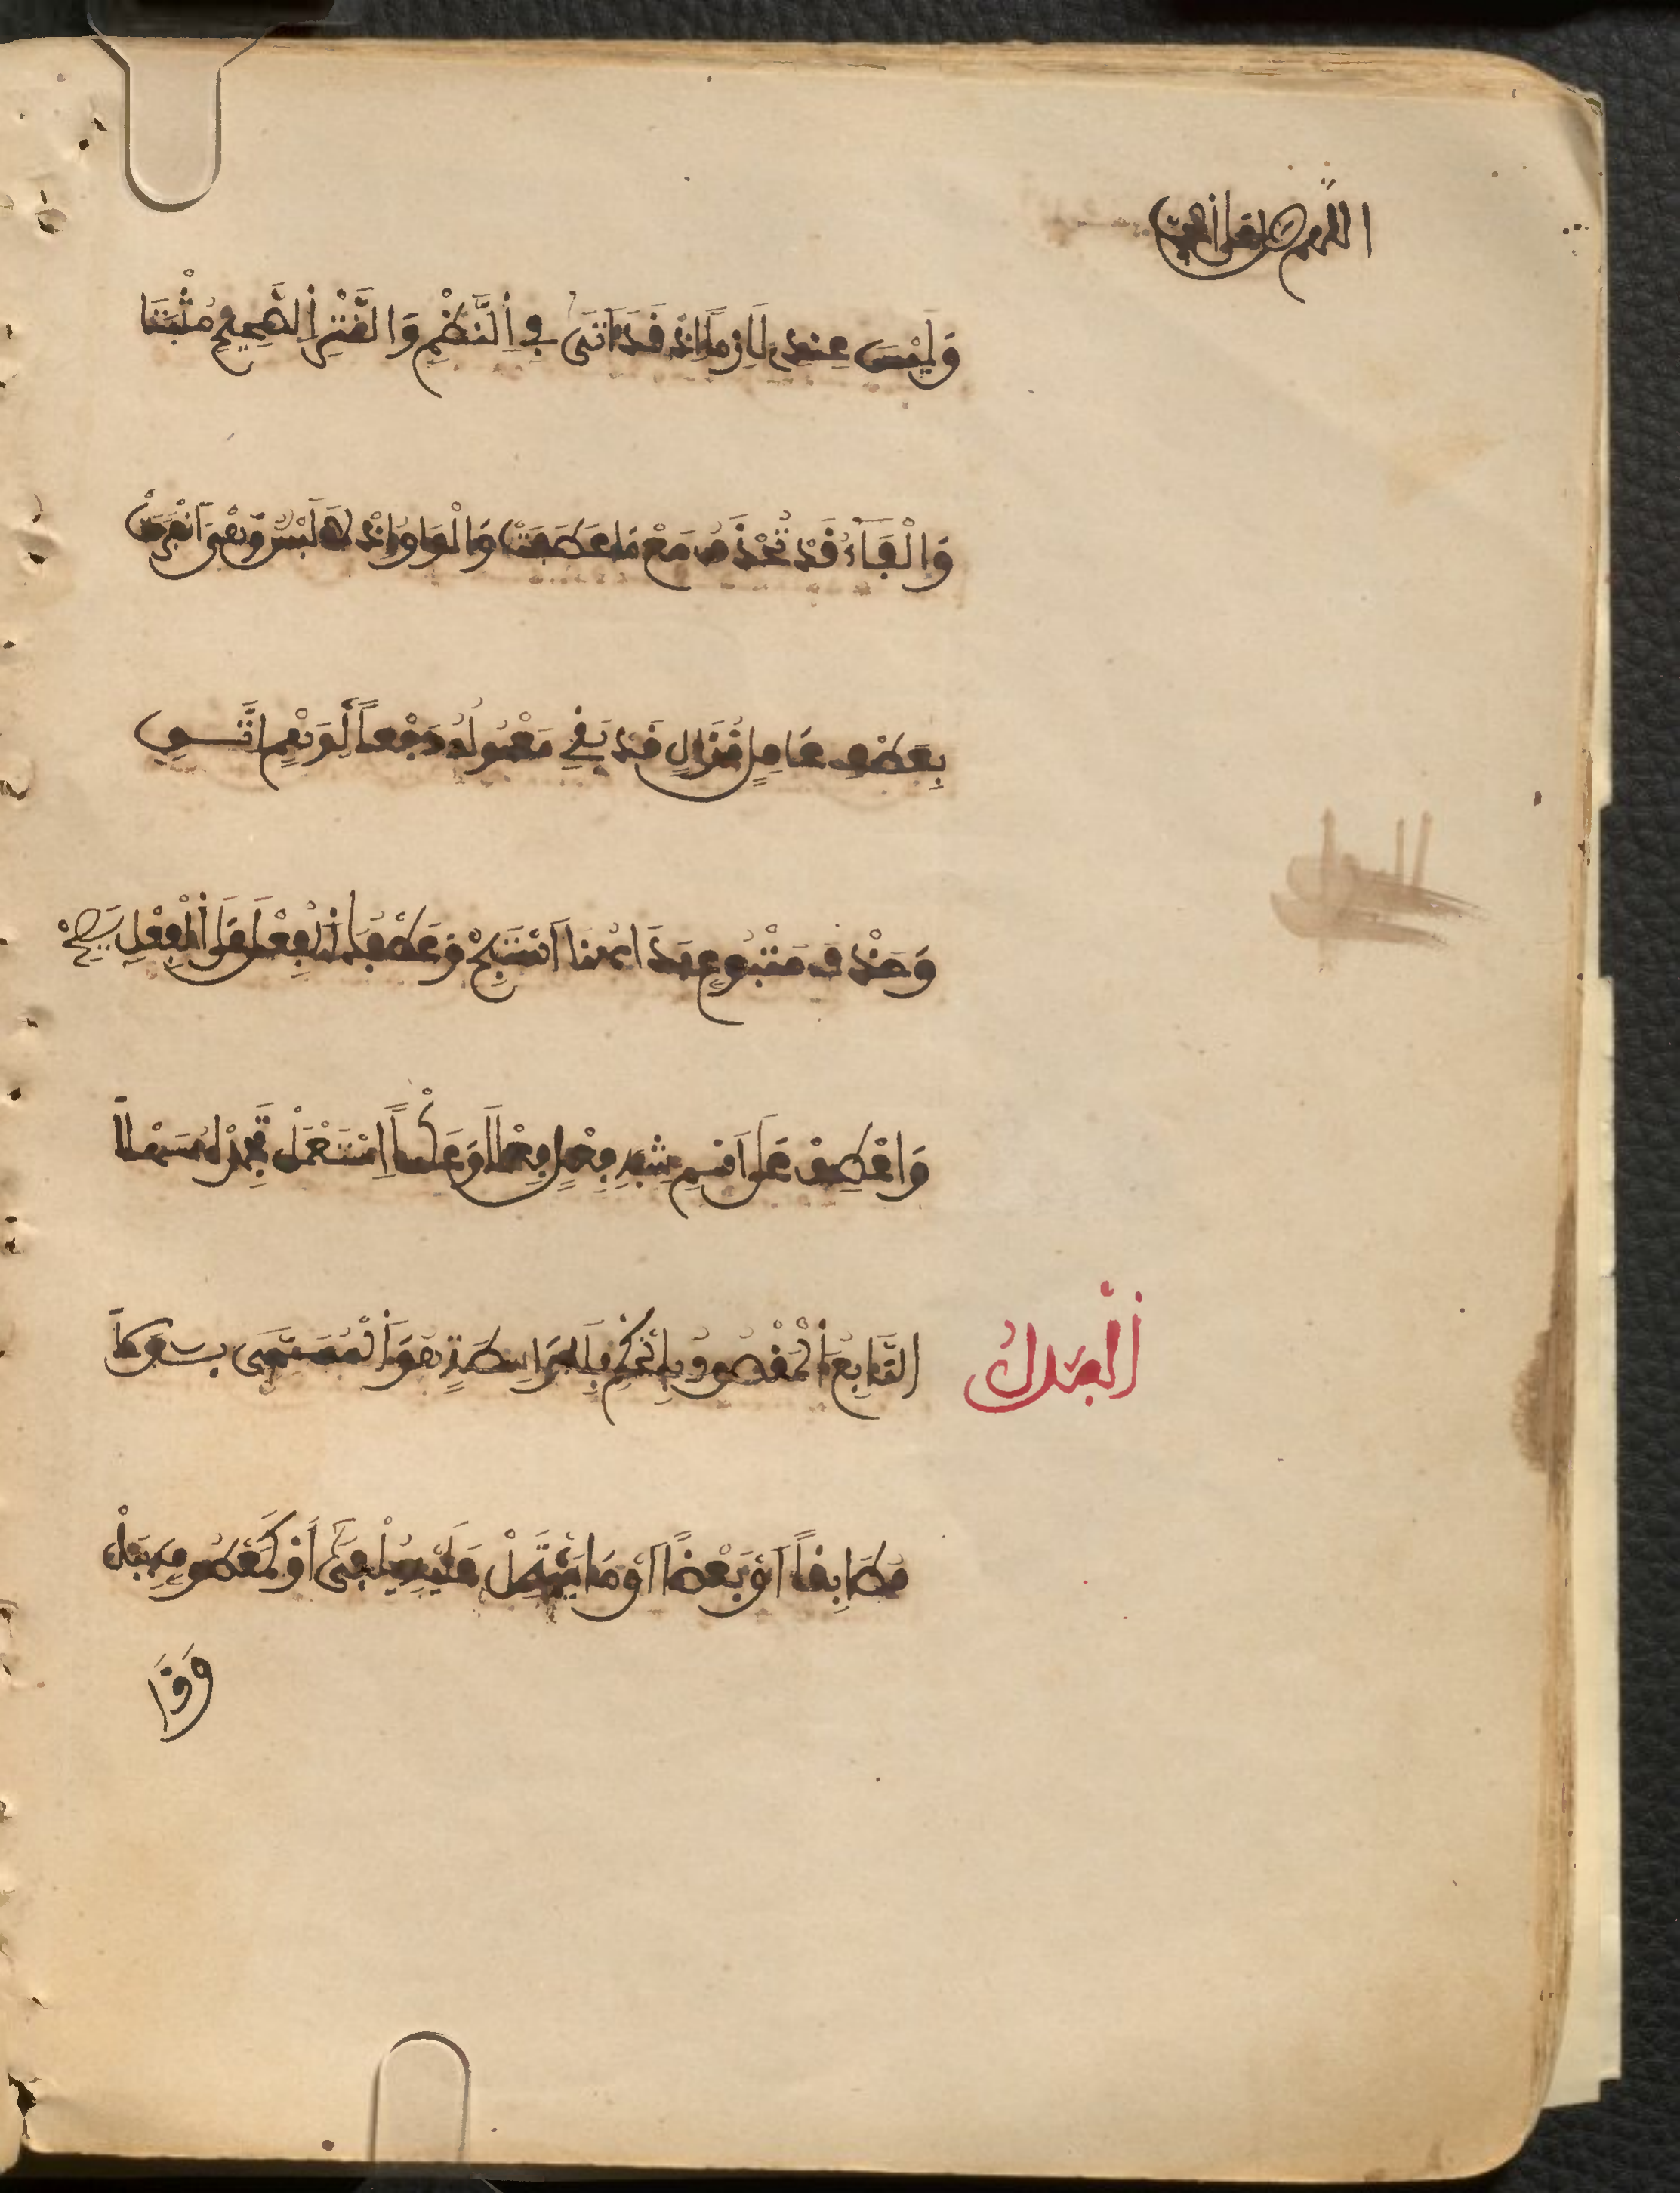 اللهم صل على
وَلَيْسَ عِنْدِي لَازِماً إِذْ قَدْ أَتَى فِي اِلنَّظْمِ وَالنَّثْرِ اِلصَّحِيحِ مُثْبَتَا
وَالْفَاءُ قَدْ تُحْذَفُ مَعْ مَا عَطَفَتْ وَالْوَاوُ إِذْ لَا لَبْسَ وَهْيَ اَنْفَرَدَتْ
بِعَطْفِ عَامِلٍ مُزَالٍ قَدْ بَقِي مَعْمُولُهُ دَفْعاً لِوَهْمٍ اتُّقِي
وَحَذْفَ مَتْبُوعٍ بَدَا هُنَا اَسْتَبِحْ وَعَطْفُكَ اَلْفِعْلَ عَلَى اَلْفِعْلِ يَصِحْ
وَاعْطِفْ عَلَى اَسْمِ شِبْهِ فِعْلٍ فِعْلاً وَعَكْساً اِسْتَعْمِلْ تَجِدْهُ سَهْلاً
اَلْبَدَلُ
التَّابِعُ اَلْمَقْصُودُ بِالْحُكْمِ بِلَا وَاسِطَةٍ هُوَ اَلْمُسَمَّى بَدَلاَ
مُطَابِقاً أَوْ بَعْضاً أَوْ مَا يَشْتَمِلْ عَلَيْهِ يُلْفَى أَوْ كَمَعْطُوفٍ بِبَلْ
وَذَا